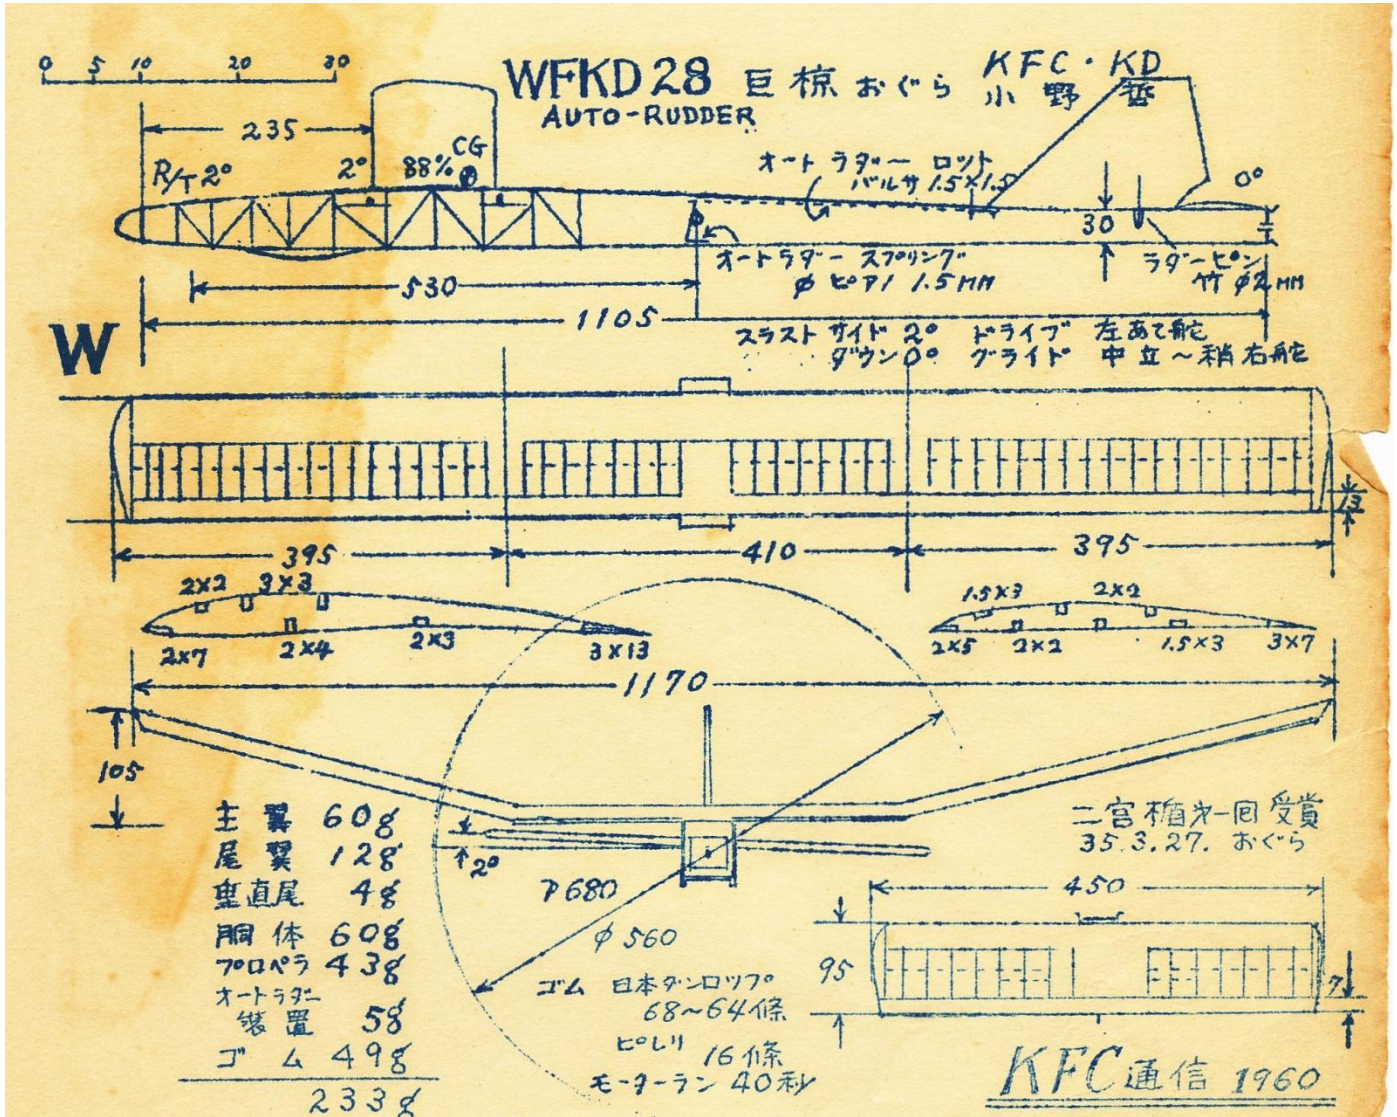 0 5 10 20 30
WFKD28 巨椋 おぐら
KFC・KD
AUTO-RUDDER
小野
235
R/T 2°
2°
88%
CG
オートラダー ロット
バルサ 1.5×1.5
0°
30
オートラダー スプリング
φ ピアノ 1.5MM
ラダーピン
竹 φ2MM
530
1105
スラスト サイド 2° ドライブ 左あて舵
ダウン 0° グライド 中立~稍右舵
W
13
395
410
395
2×2 3×3
2×7 2×4 2×3 3×13
1.5×3 2×2
2×5 2×2 1.5×3 3×7
1170
105
2°
主翼 60g
尾翼 12g
垂直尾 4g
胴体 60g
プロペラ 43g
オートラダー
装置 5g
ゴム 49g
233g
P680
φ560
ゴム 日本ダンロップ
68~64條
ピレリ 16條
モーターラン 40秒
二宮楯才一回受賞
35.3.27. おぐら
450
95
7
KFC通信 1960